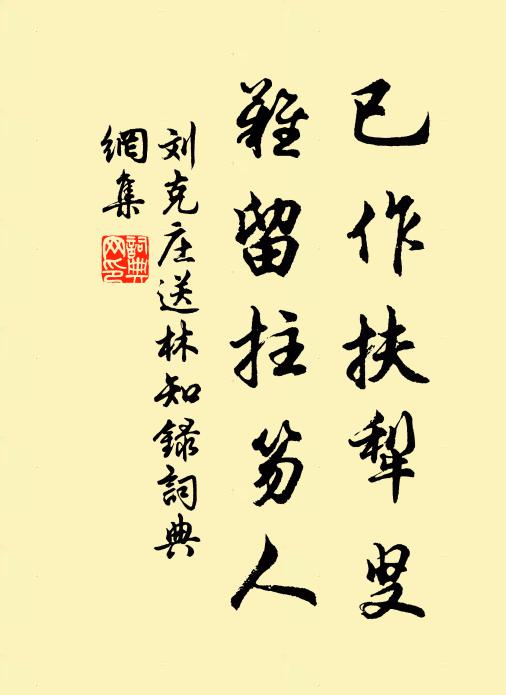 已作扶犁叟
難留拄笏人
刘克庄送林知録詞典
網集
詞典網印